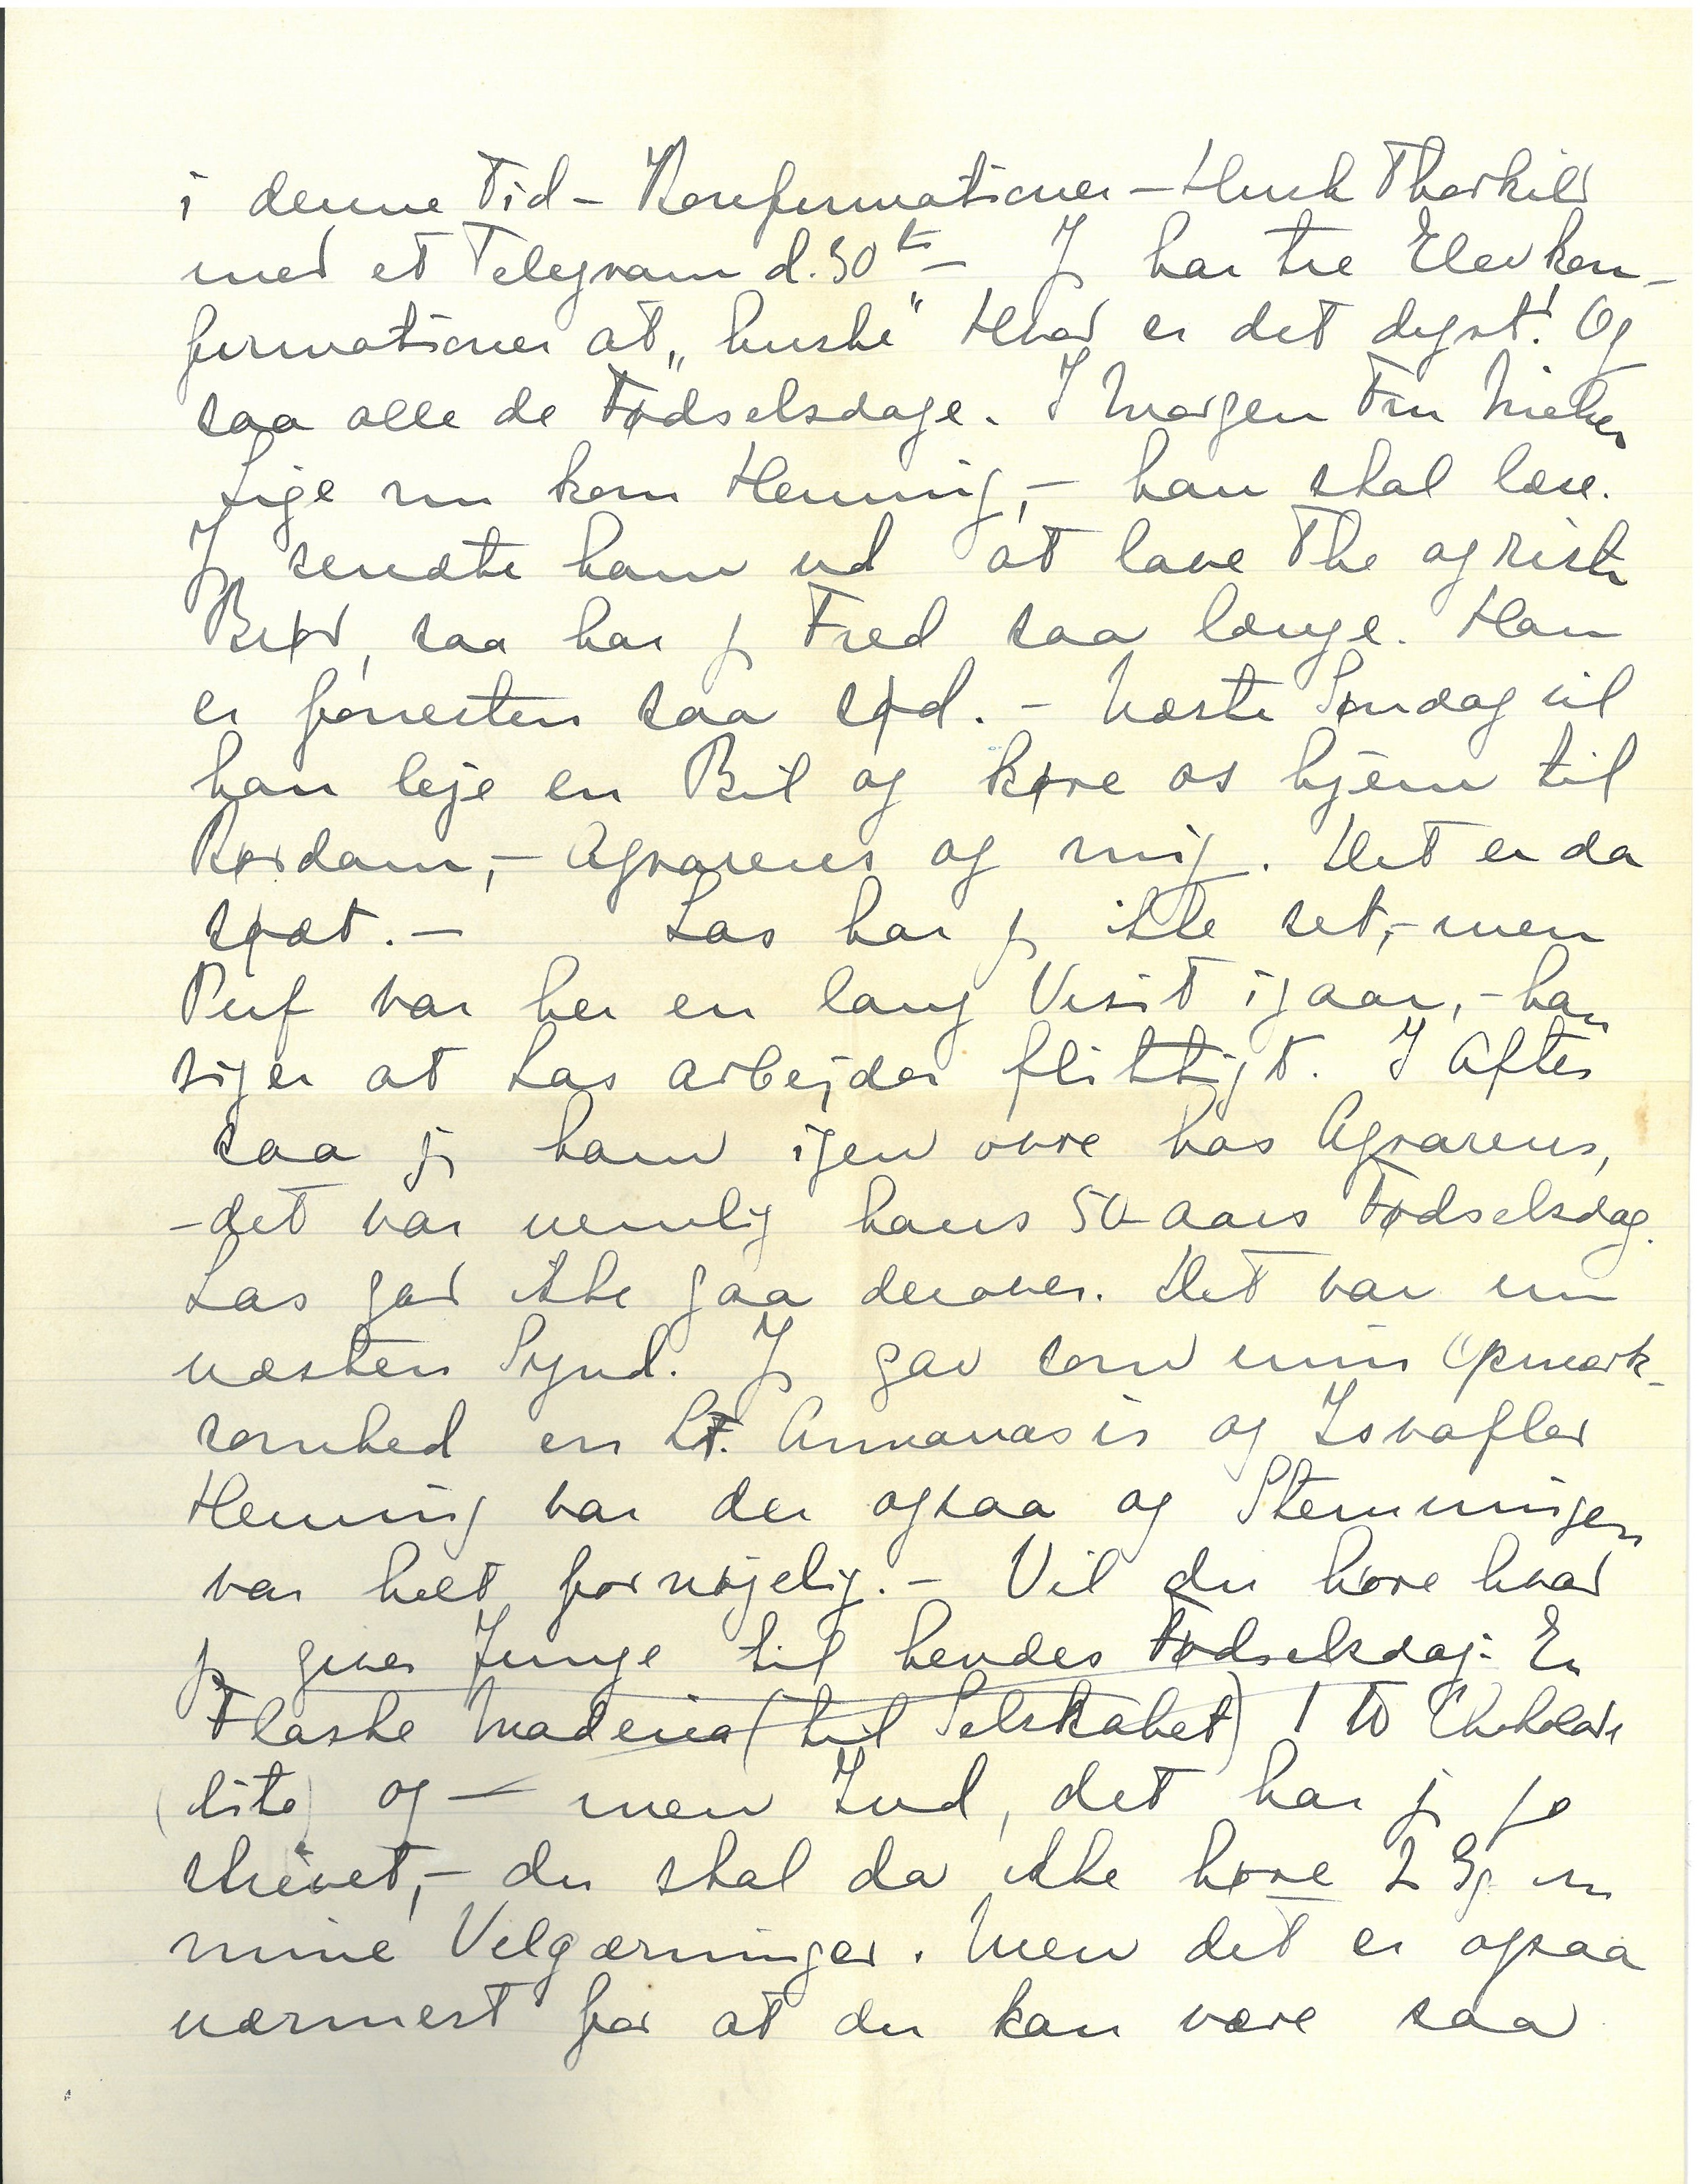 i denne Tid - Konfirmationer - Husk Thorkild
med et Telegram d. 30te - Jg har tre Elevkon-
firmationer at „huske" Hvor er det dyrt! Og
saa alle de Fødselsdage. I Morgen Fru
Lige nu kom Henning, - han skal læse.
Jg sendte ham ud at lave The og riste
Brød, saa har jg Fred saa længe. Han
er forresten saa sød. - Næste Søndag vil
han leje en Bil og køre os hjem til
Rørdam, - Agrarens og mig. Det er da
sødt. - Las har jg ikke set, - men
Puf var her en lang Visit igaar, - han
siger at Las arbejder flittigt. I Aftes
saa jg ham igen ovre hos Agrarens,
- det var nemlig hans 50 Aars Fødselsdag.
Las gad ikke gaa derover. Det var nu
næsten Synd. Jg gav som min Opmærk-
somhed en Lt. Annanasis og Isvafler
Henning var der ogsaa og Stemningen
var helt fornøjelig. - Vil du høre hvad
jg giver Junge til hendes Fødselsdag: En
Flaske Madeira (til Selskabet) 1 ℔ Chokolade
(dito) og - men Gud, det har jg jo
skrevet, - du skal da ikke høre 2 Gg om
mine Velgærninger. Men det er ogsaa
nærmest for at du kan være saa